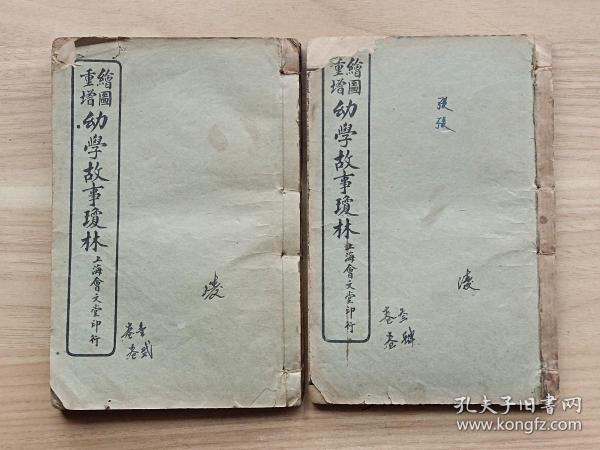 繪圖
重增
幼學故事瓊林
上海會文堂印行
凌
卷壹
卷弍
繪圖
重增
幼學故事瓊林
上海會文堂印行
張
張
凌
卷叁
卷肆
孔夫子旧書网
www.kongfz.com